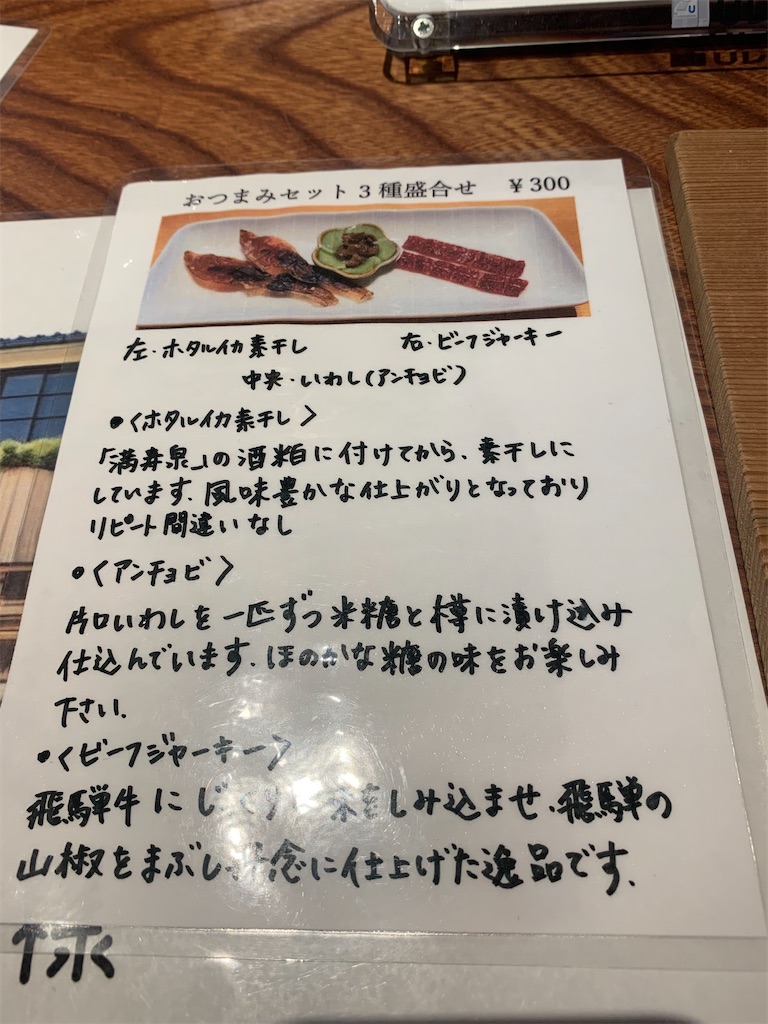 おつまみセット3種盛合せ ¥300
左・ホタルイカ素干し 右・ビーフジャーキー
中央・いわし(アンチョビ)
•〈ホタルイカ素干し〉
「満寿泉」の酒粕に付けてから、素干しに
しています。風味豊かな仕上がりとなっており
リピート間違いなし
•〈アンチョビ〉
片口いわしを一匹ずつ米糖と樽に漬け込み
仕込んでいます。ほのかな糖の味をお楽しみ
下さい。
•〈ビーフジャーキー〉
飛騨牛にじっくり味をしみ込ませ、飛騨の
山椒をまぶし丹念に仕上げた逸品です。